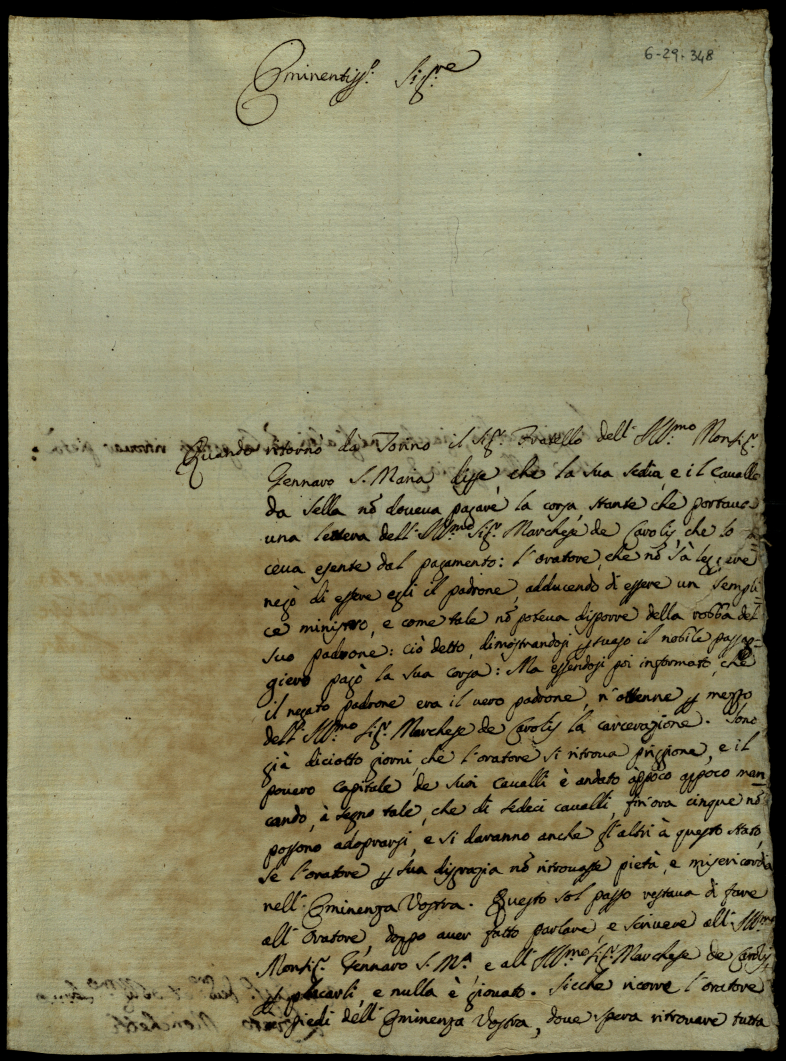 6-29-348
Eminentiss.º Sig.re
Quando ritornò da Torino il Sig.r Fratello dell' Ill.mo Monsig.r
Gennaro S. Maria disse, che la sua sedia, e il Cavallo
da sella nõ doueua pagare la corsa, stante che portaua
una lettera dell' Ill.mo Sig.r Marchese de Carolis, che lo
ceua esente dal pagamento: l'oratore, che nõ sà leggere
negò di essere egli il padrone, adducendo di essere un sempli=
ce ministro, e come tale nõ poteua disporre della robba del
suo padrone: ciò detto, dimostrandosi p̱suaso il nobile passag=
giero pagò la sua corsa: Ma essendosi poi informato, che
il negato padrone era il uero padrone, n'ottenne p̱ mezzo
dell' Ill.mo Sig.r Marchese de Carolis la carcerazione. Sono
già diciotto giorni, che l'oratore si ritroua priggione, e il
pouero capitale de suoi caualli è andato àppoco appoco man
cando, à segno tale, che di sedeci caualli, fin'ora cinque nõ
possono adoprarsi, e si daranno anche gl'altri à questo stato,
se l'oratore p̱ sua disgrazia nõ ritrouasse pietà, e misericordia
nell' Eminenza Vostra. Questo sol passo restaua di fare
all' Oratore, doppo auer fatto parlare, e scriuere all' Ill.mo
Monsig.r Gennaro S. M.a, e all' Ill.mo Sig.r Marchese de Carolis
p̱ placarli, e nulla è giouato. Sicche ricorre l'oratore
piedi dell' Eminenza Vostra, doue spera ritrouare tutta